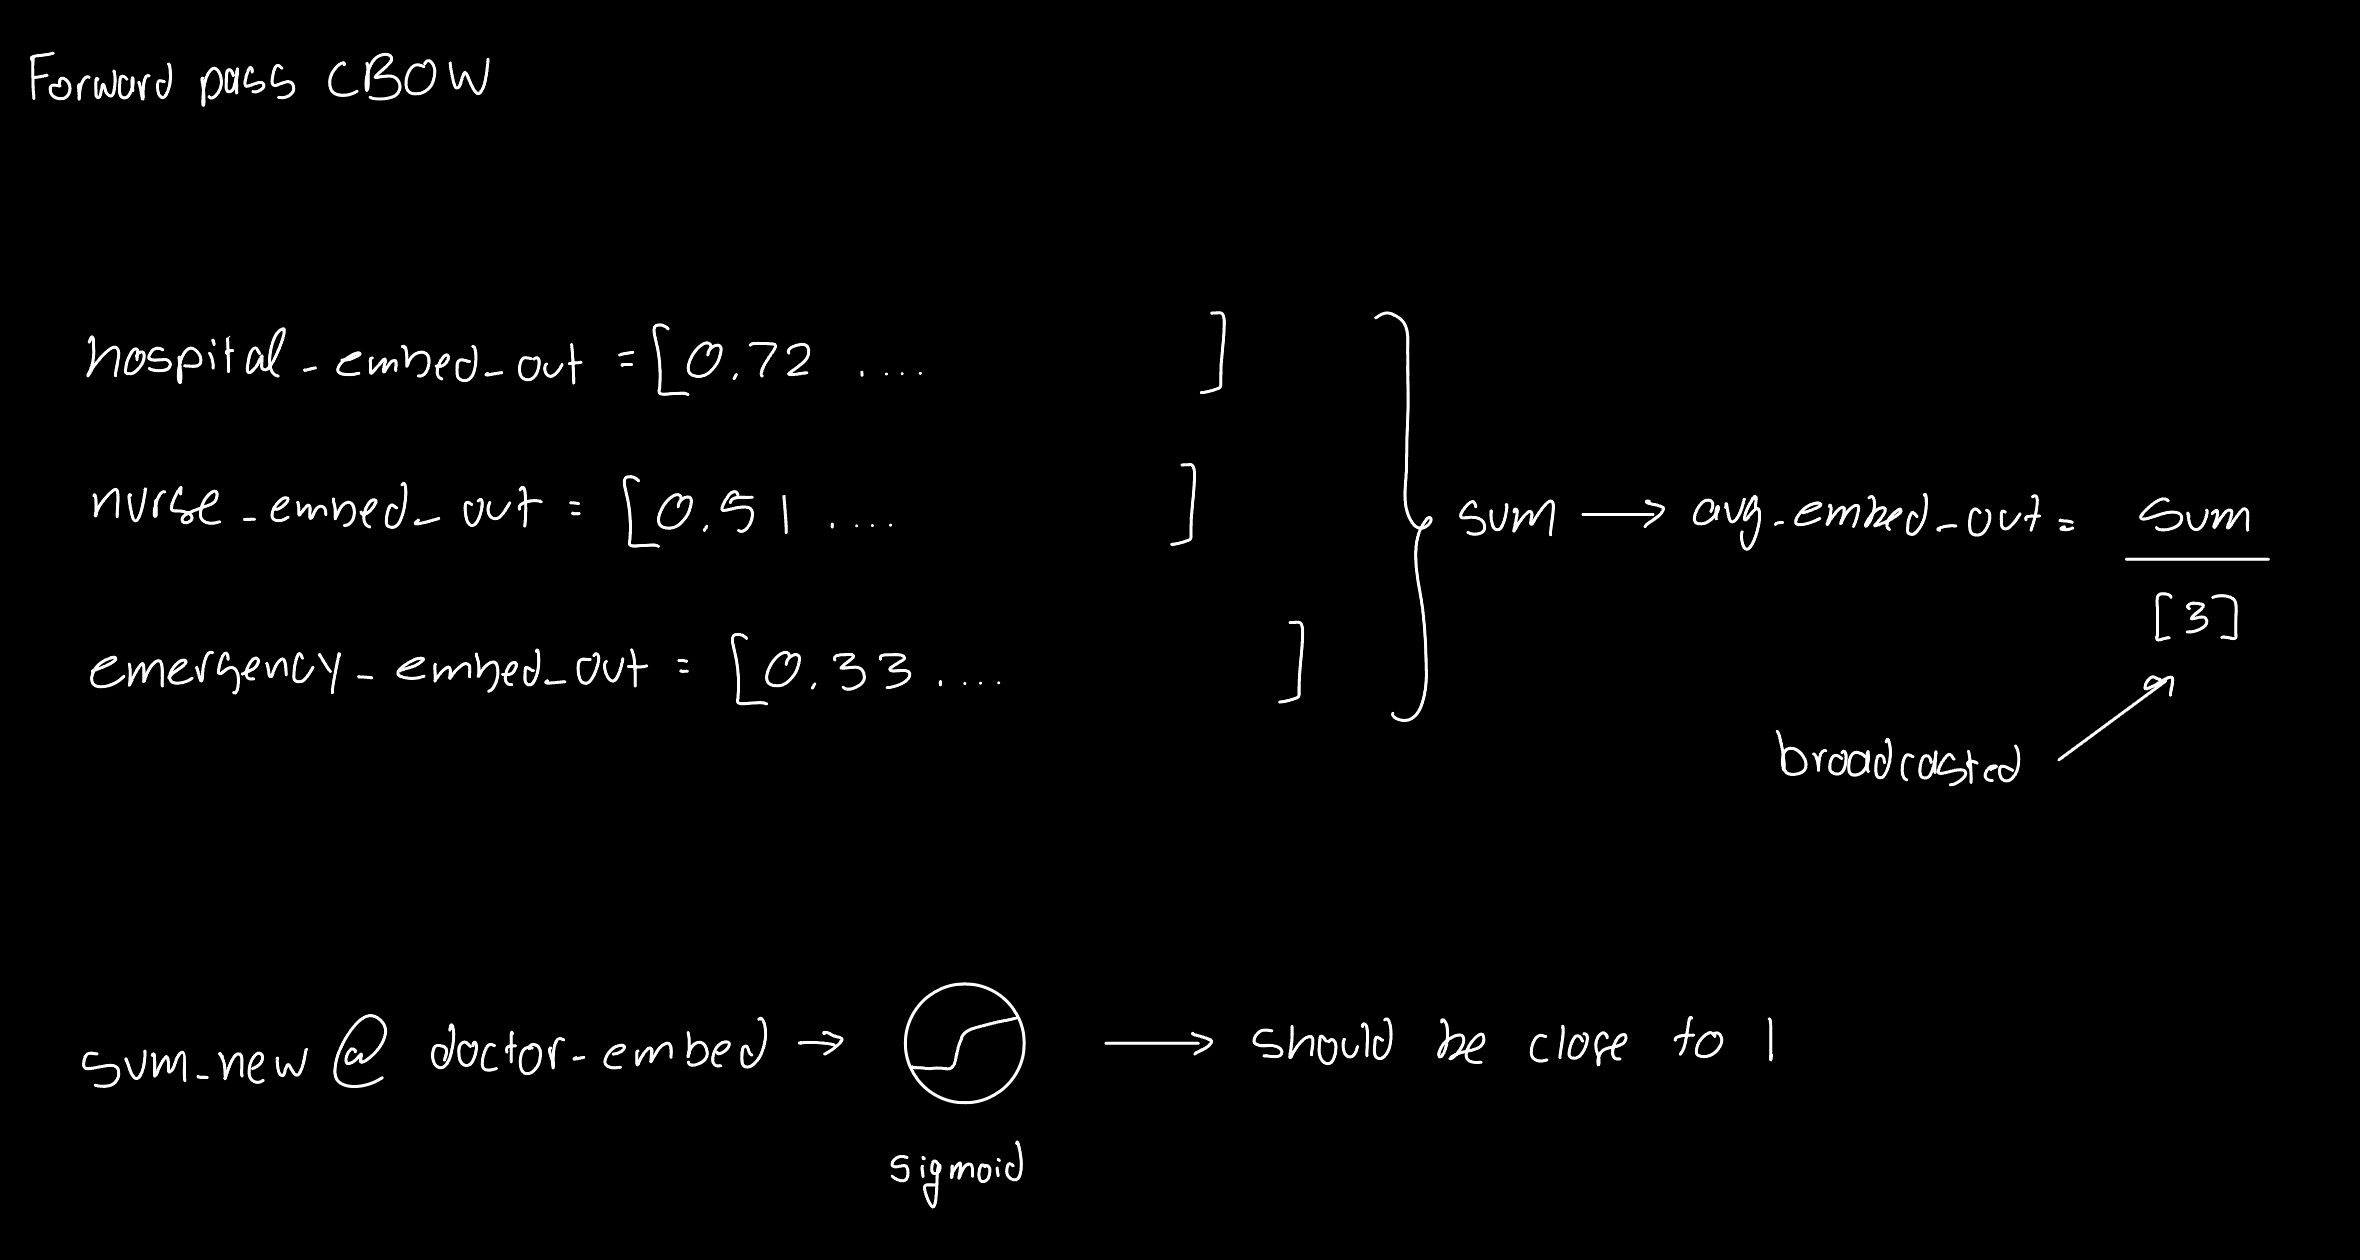 Forward pass CBOW
hospital_embed_out = [0.72 .... ]
nurse_embed_out = [0.51 .... ]
emergency_embed_out = [0.33 .... ]
sum → avg_embed_out = sum
[3]
broadcasted
sum_new @ doctor_embed → → should be close to 1
sigmoid